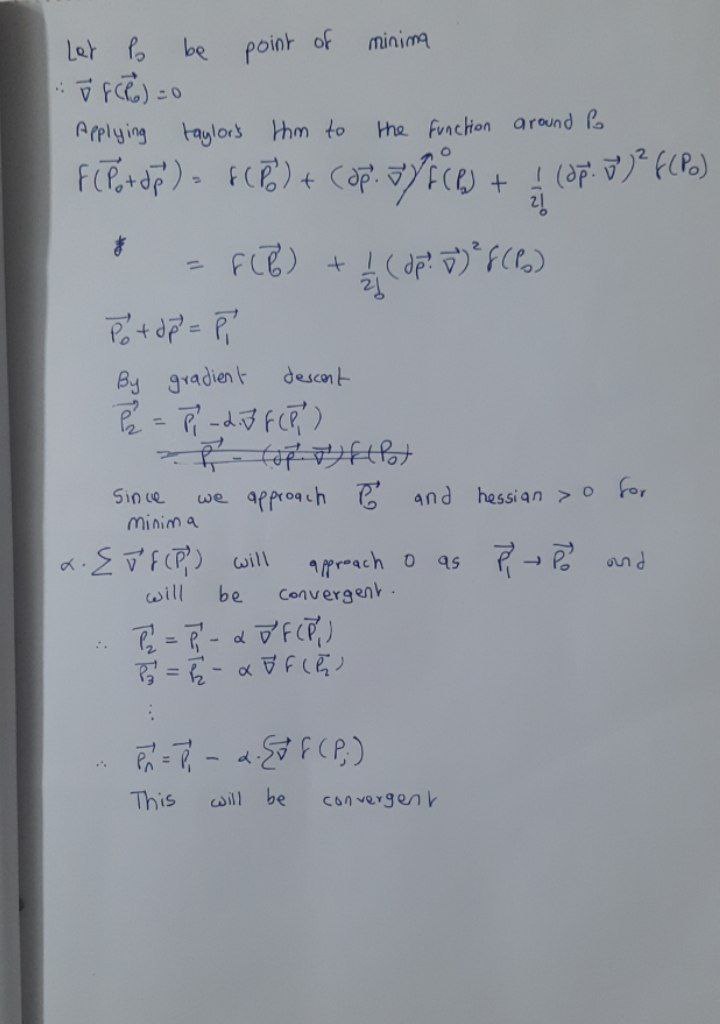 Let P₀ be point of minima
∴ ∇⃗ F(P⃗₀) = 0
Applying taylors thm to the function around P₀
F(P⃗₀+dp⃗) = F(P⃗₀) + (dp⃗·∇⃗) F(P₀) + 1/2! (dp⃗·∇⃗)² F(P₀)
0
= F(P⃗₀) + 1/2! (dp⃗·∇⃗)² F(P₀)
P⃗₀ + dp⃗ = P⃗₁
By gradient descent
P⃗₂ = P⃗₁ - α·∇⃗ F(P⃗₁)
= P⃗₁ - (dp⃗·∇⃗) F(P₀)
Since we approach P⃗₀ and hessian > 0 for
minima
α·Σ ∇⃗ F(P⃗₁) will approach 0 as P⃗₁ → P⃗₀ and
will be convergent.
∴ P⃗₂ = P⃗₁ - α ∇⃗ F(P⃗₁)
P⃗₃ = P⃗₂ - α ∇⃗ F(P⃗₂)
⋮
∴ P⃗ₙ = P⃗₁ - α·Σ∇⃗ F(Pᵢ)
This will be convergent